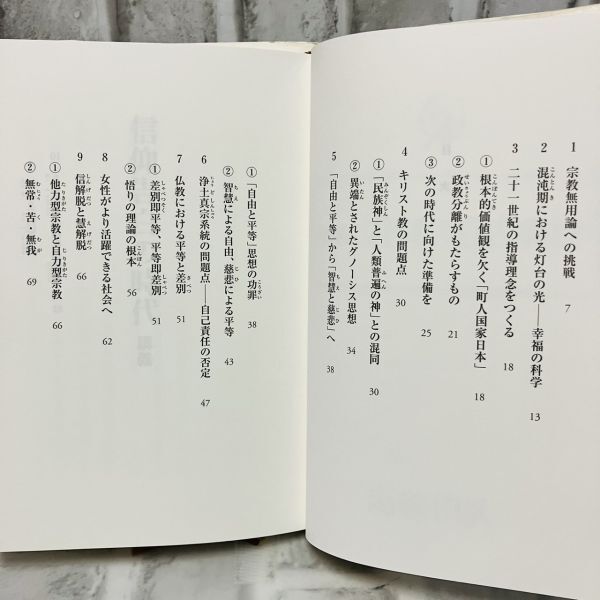 1 宗教無用論への挑戦 7
2 混沌期における灯台の光――幸福の科学 13
3 二十一世紀の指導理念をつくる 18
① 根本的価値観を欠く「町人国家日本」 18
② 政教分離がもたらすもの 21
③ 次の時代に向けた準備を 25
4 キリスト教の問題点 30
① 「民族神」と「人類普遍の神」との混同 30
② 異端とされたグノーシス思想 34
5 「自由と平等」から「智慧と慈悲」へ 38
① 「自由と平等」思想の功罪 38
② 智慧による自由、慈悲による平等 43
6 浄土真宗系統の問題点――自己責任の否定 47
7 仏教における平等と差別 51
① 差別即平等、平等即差別 51
② 悟りの理論の根本 56
8 女性がより活躍できる社会へ 62
9 信解脱と慧解脱 66
① 他力型宗教と自力型宗教 66
② 無常・苦・無我 69